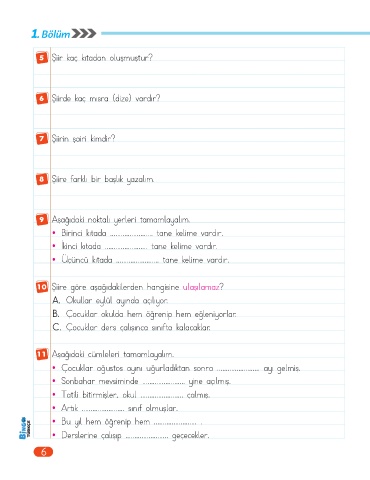 1. Bölüm
5 Şiir kaç kıtadan oluşmuştur?
6 Şiirde kaç mısra (dize) vardır?
7 Şiirin şairi kimdir?
8 Şiire farklı bir başlık yazalım.
9 Aşağıdaki noktalı yerleri tamamlayalım.
• Birinci kıtada ...................... tane kelime vardır.
• İkinci kıtada ...................... tane kelime vardır.
• Üçüncü kıtada ...................... tane kelime vardır.
10 Şiire göre aşağıdakilerden hangisine ulaşılamaz?
A. Okullar eylül ayında açılıyor.
B. Çocuklar okulda hem öğrenip hem eğleniyorlar.
C. Çocuklar ders çalışınca sınıfta kalacaklar.
11 Aşağıdaki cümleleri tamamlayalım.
• Çocuklar ağustos ayını uğurladıktan sonra ...................... ayı gelmiş.
• Sonbahar mevsiminde ...................... yine açılmış.
• Tatili bitirmişler, okul ...................... çalmış.
• Artık ...................... sınıf olmuşlar.
• Bu yıl hem öğrenip hem ...................... .
• Derslerine çalışıp ...................... geçecekler.
BİNGO
TÜRKÇE
6